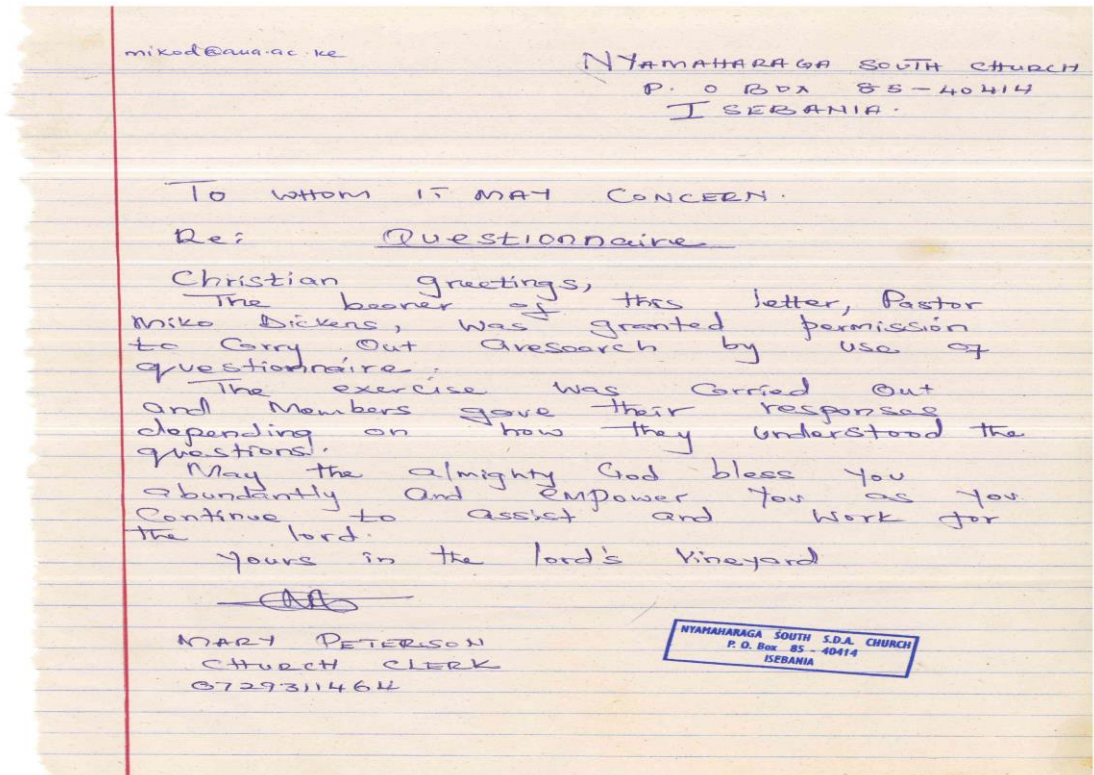 mikod@aua.ac.ke
NYAMAHARAGA SOUTH CHURCH
P. O BOX 85-40414
ISEBANIA.
To WHOM IT MAY CONCERN.
Re: Questionnaire
Christian greetings,
The bearer of this letter, Pastor
Miko Dickens, was granted permission
to Carry Out aresearch by use of
questionnaire.
The exercise was Carried Out
and Members gave their responses
depending on how they understood the
questions.
May the almighty God bless you
abundantly and empower you as you
Continue to assist and work for
the lord.
Yours in the lord's Vineyard
MARY PETERSON
CHURCH CLERK
0729311464
NYAMAHARAGA SOUTH S.D.A. CHURCH
P. O. Box 85 - 40414
ISEBANIA